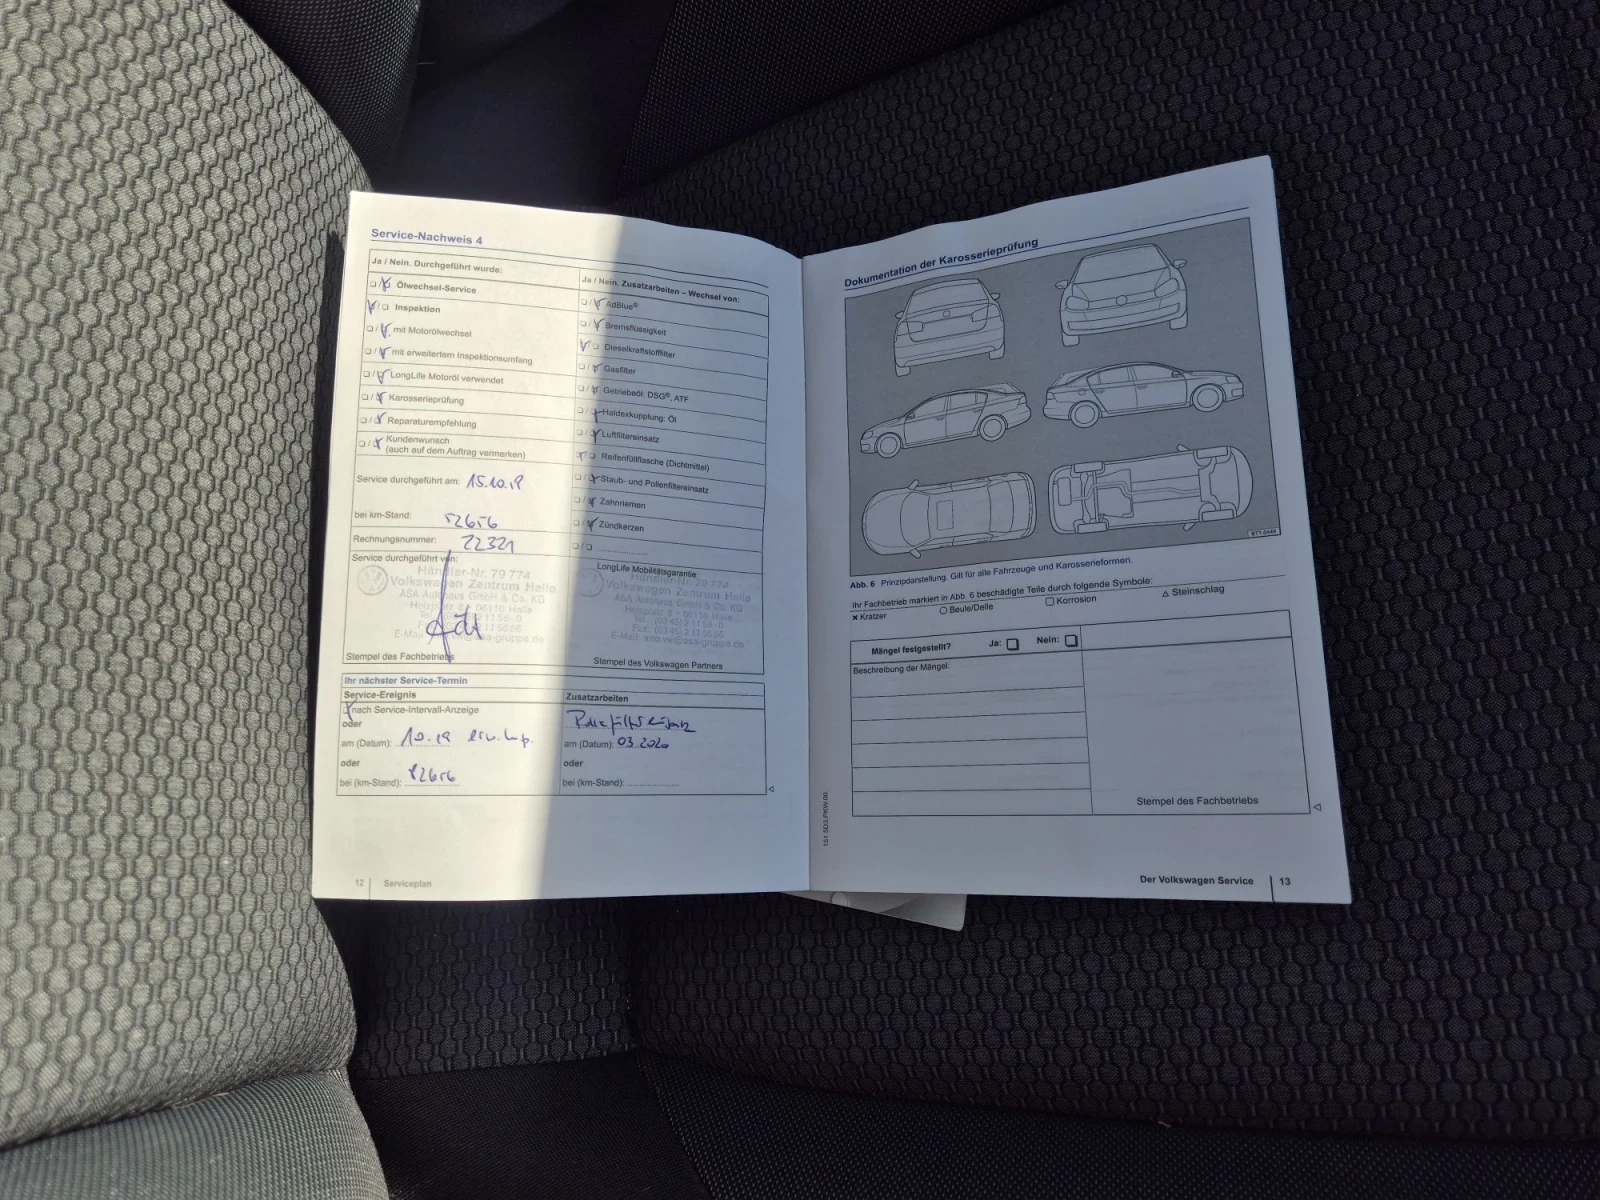 Service-Nachweis 4
Ja / Nein. Durchgeführt wurde:
Ölwechsel-Service
Inspektion
mit Motorölwechsel
mit erweitertem Inspektionsumfang
LongLife Motoröl verwendet
Karosserieprüfung
Reparaturempfehlung
Kundenwunsch
(auch auf dem Auftrag vermerken)
Service durchgeführt am: 15.10.18
bei km-Stand: 52656
Rechnungsnummer: 22321
Service durchgeführt von:
Händler-Nr. 79 774
Volkswagen Zentrum Halle
ASA Autohaus GmbH & Co. KG
Holzplatz 8 / 06110 Halle
Stempel des Fachbetriebs
Ja / Nein. Zusatzarbeiten – Wechsel von:
AdBlue®
Bremsflüssigkeit
Dieselkraftstofffilter
Gasfilter
Getriebeöl: DSG®, ATF
Haldexkupplung: Öl
Luftfiltereinsatz
Reifenfüllflasche (Dichtmittel)
Staub- und Pollenfiltereinsatz
Zahnriemen
Zündkerzen
LongLife Mobilitätsgarantie
Händler-Nr. 79 774
Volkswagen Zentrum Halle
ASA Autohaus GmbH & Co. KG
Holzplatz 8 / 06110 Halle
Tel.: (03 45) 2 11 56 - 0
Fax: (03 45) 2 11 56 56
E-Mail: info.vw@asa-gruppe.de
Stempel des Volkswagen Partners
Ihr nächster Service-Termin
Service-Ereignis
nach Service-Intervall-Anzeige
oder
am (Datum): 10.19
oder
bei (km-Stand): 82656
Zusatzarbeiten
am (Datum): 03.2020
oder
bei (km-Stand):
12 Serviceplan
Dokumentation der Karosserieprüfung
BTT-0448
Abb. 6 Prinzipdarstellung. Gilt für alle Fahrzeuge und Karosserieformen.
Ihr Fachbetrieb markiert in Abb. 6 beschädigte Teile durch folgende Symbole:
Kratzer Beule/Delle Korrosion Steinschlag
Mängel festgestellt? Ja: Nein:
Beschreibung der Mängel:
Stempel des Fachbetriebs
151.5D3.PKW.00
Der Volkswagen Service 13